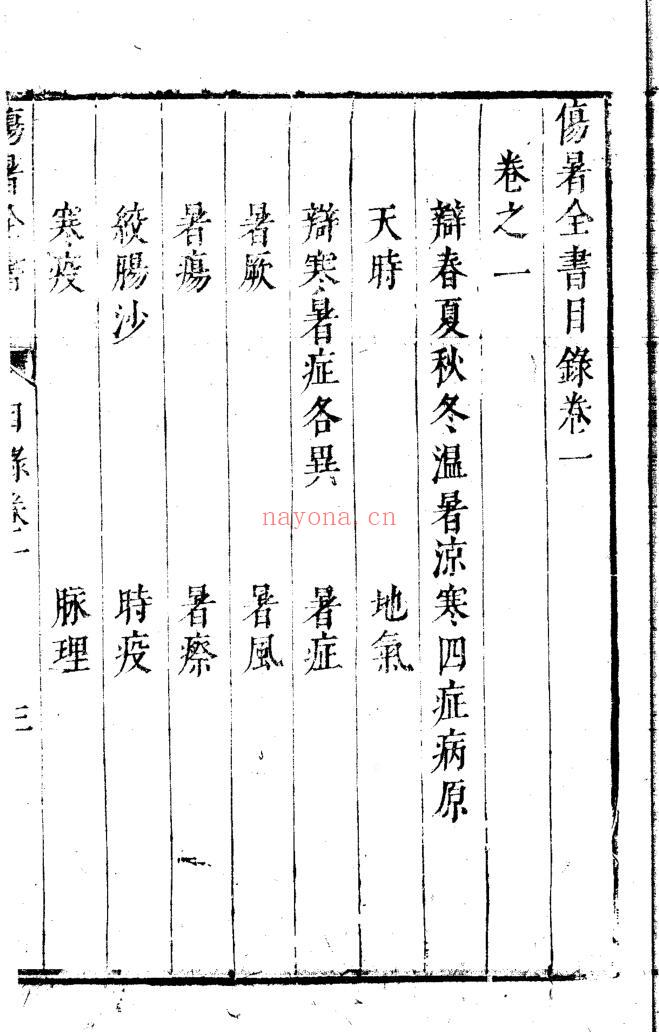 傷暑全書目錄卷一
卷之一
辯春夏秋冬温暑涼寒四症病原
天時 地氣
辯寒暑症各異 暑症
暑厥 暑風
暑瘍 暑瘵
絞腸沙 時疫
寒疫 脉理
傷暑全書 目錄卷一 三
nayona.cn